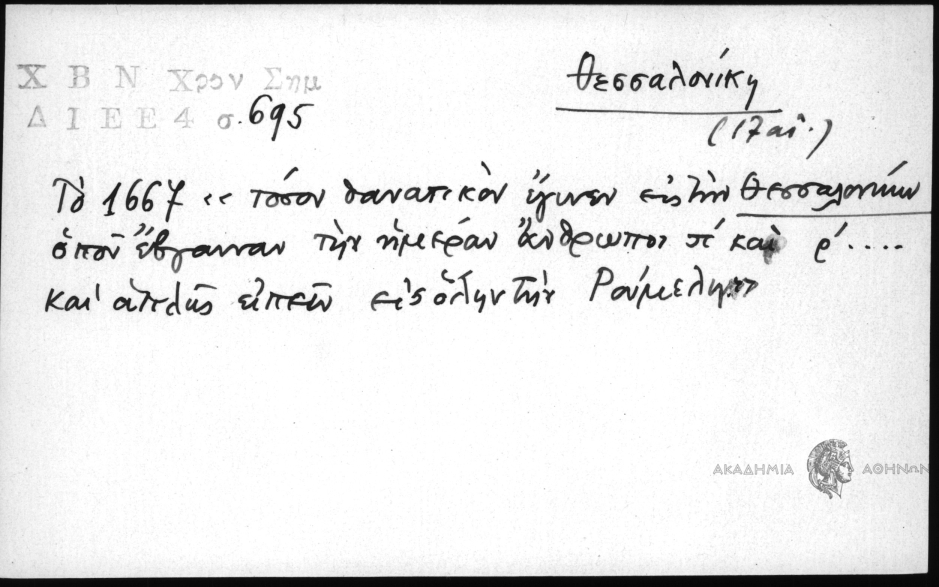 Χ Β Ν Χρον Σημ
Δ Ι Ε Ε 4 σ. 695
Θεσσαλονίκη
(17 αἰ.)
Τὸ 1667 << τόσον θανατικὸν ἔγινεν εἰς τὴν Θεσσαλονίκην
ὁποῦ ἔβγαιναν τὴν ἡμεράν ἄνθρωποι π' καὶ ρ' ....
καὶ ἁπλῶς εἰπεῖν εἰς ὅλην τὴν Ρούμελην
ΑΚΑΔΗΜΙΑ ΑΘΗΝΩΝ